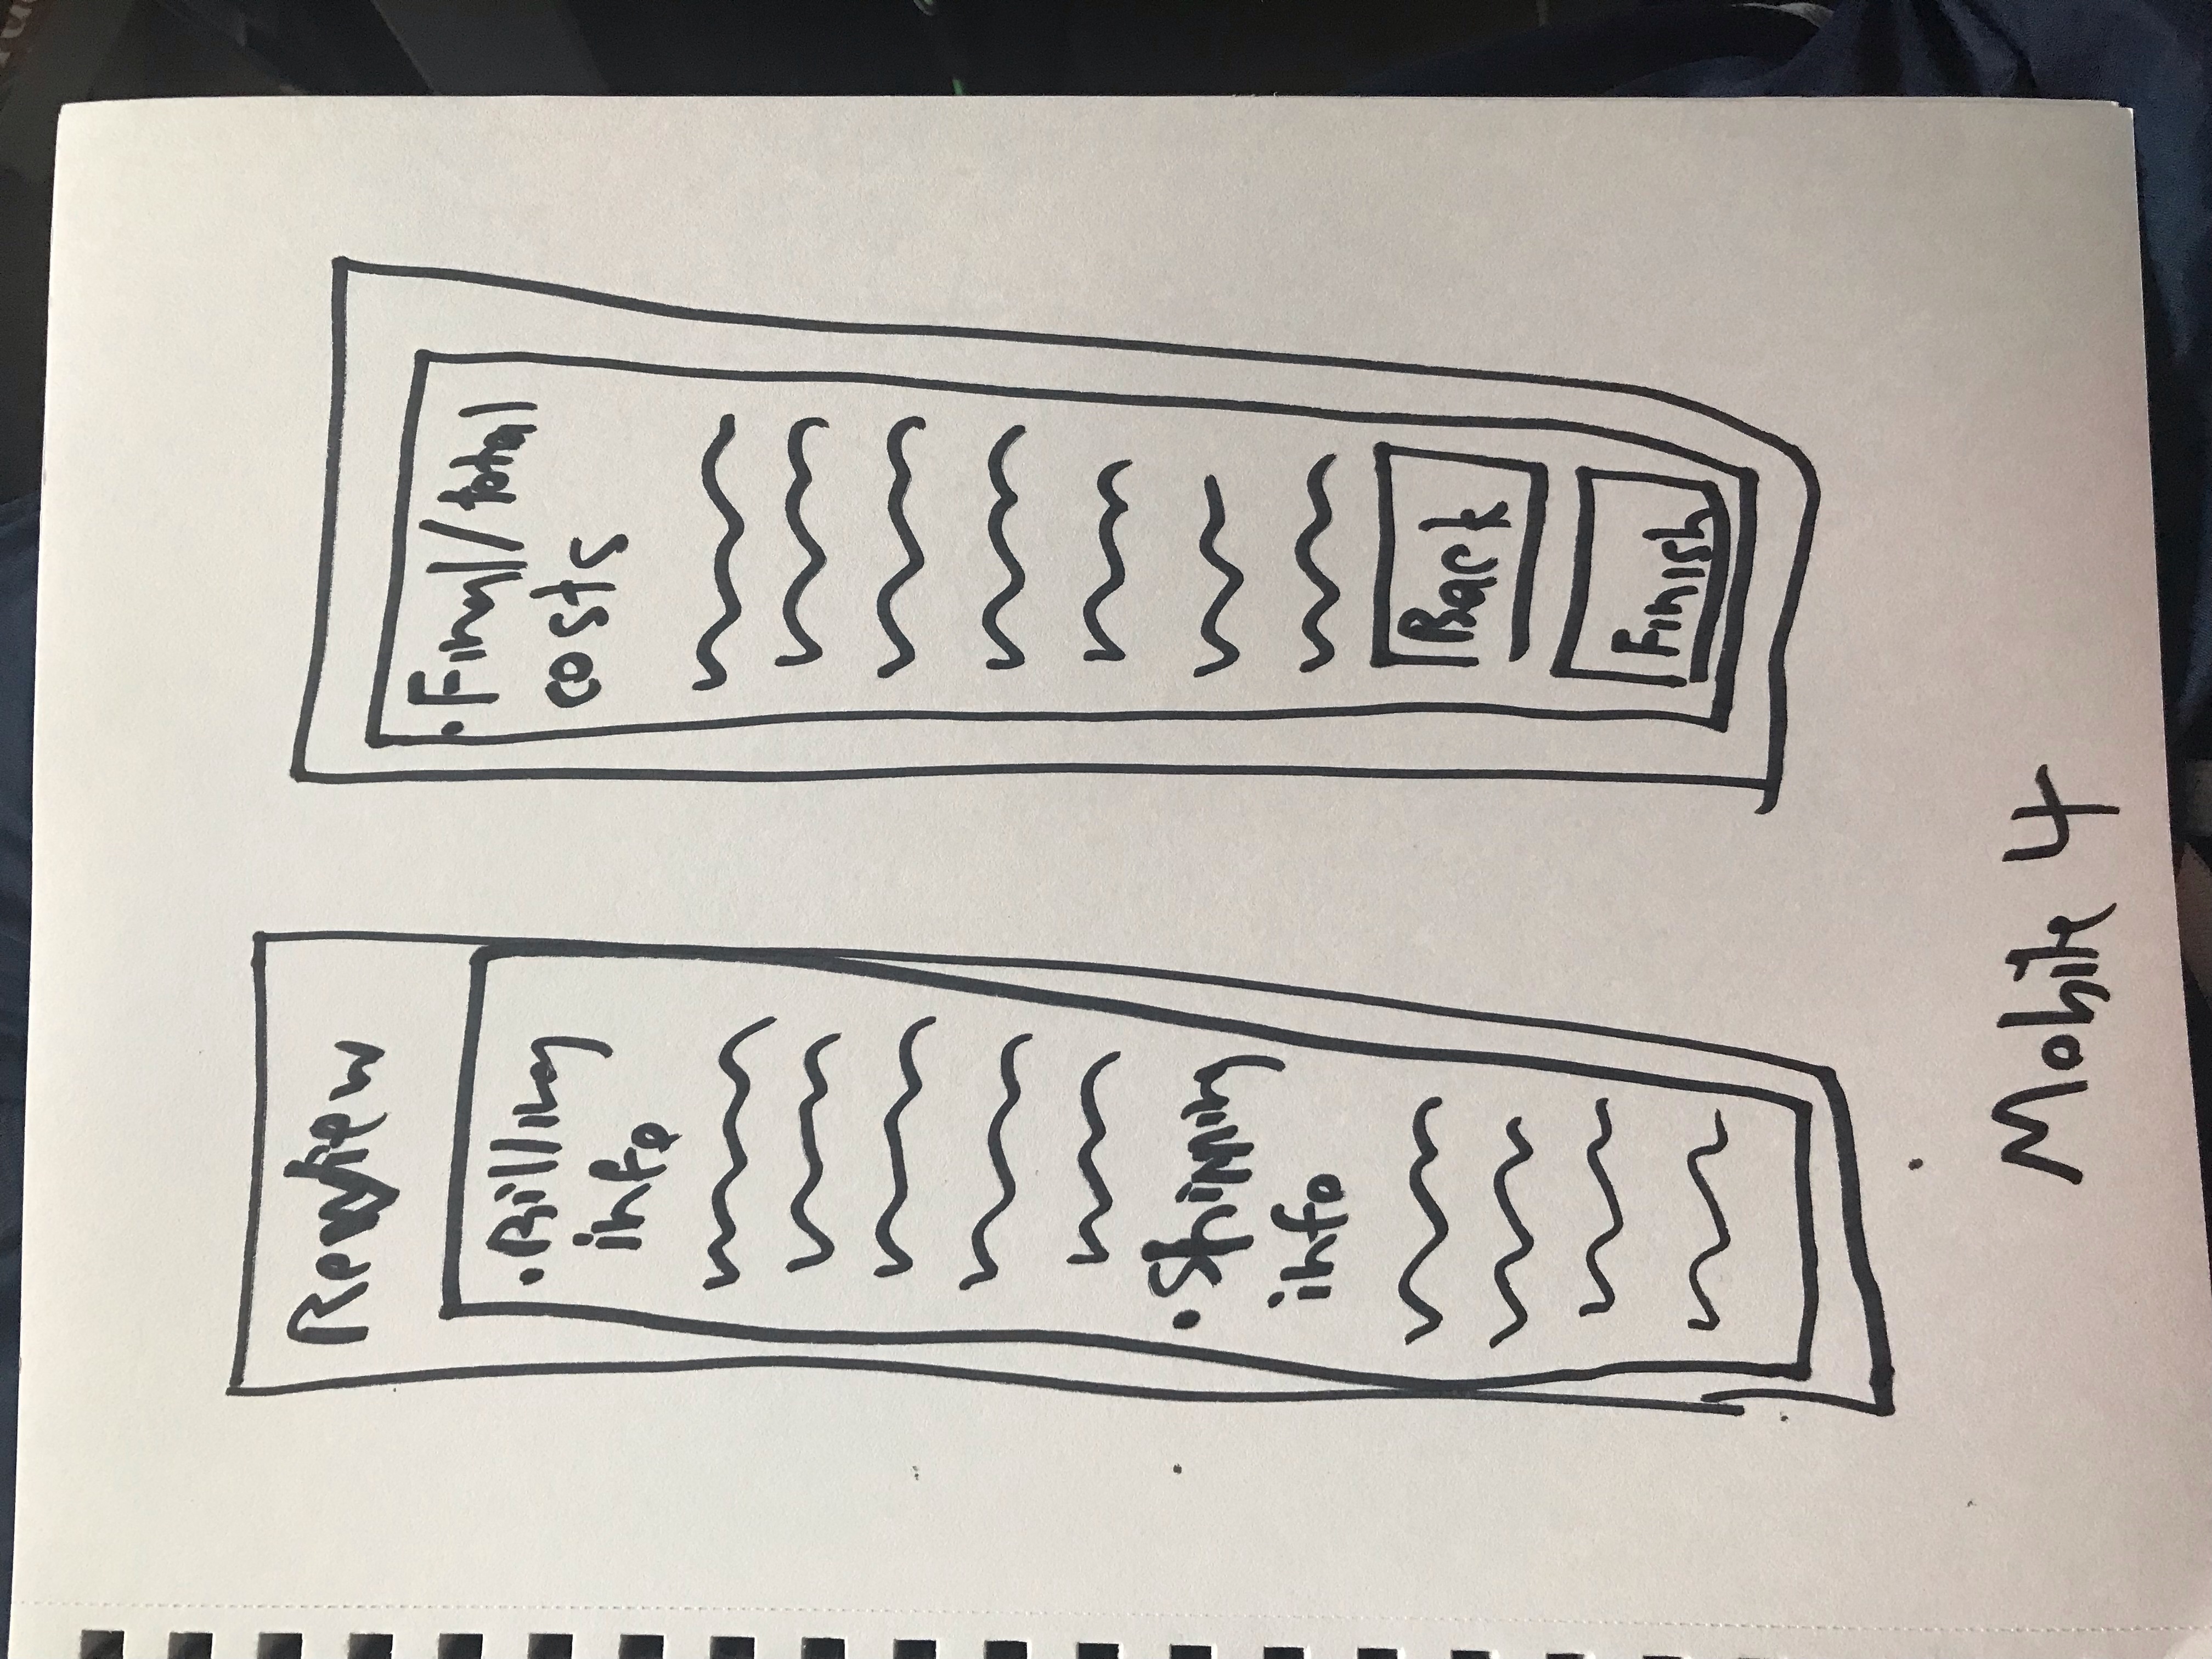 Review
• Billing
info
• Shipping
info
• Final/total
costs
Back
Finish
Mobile 4